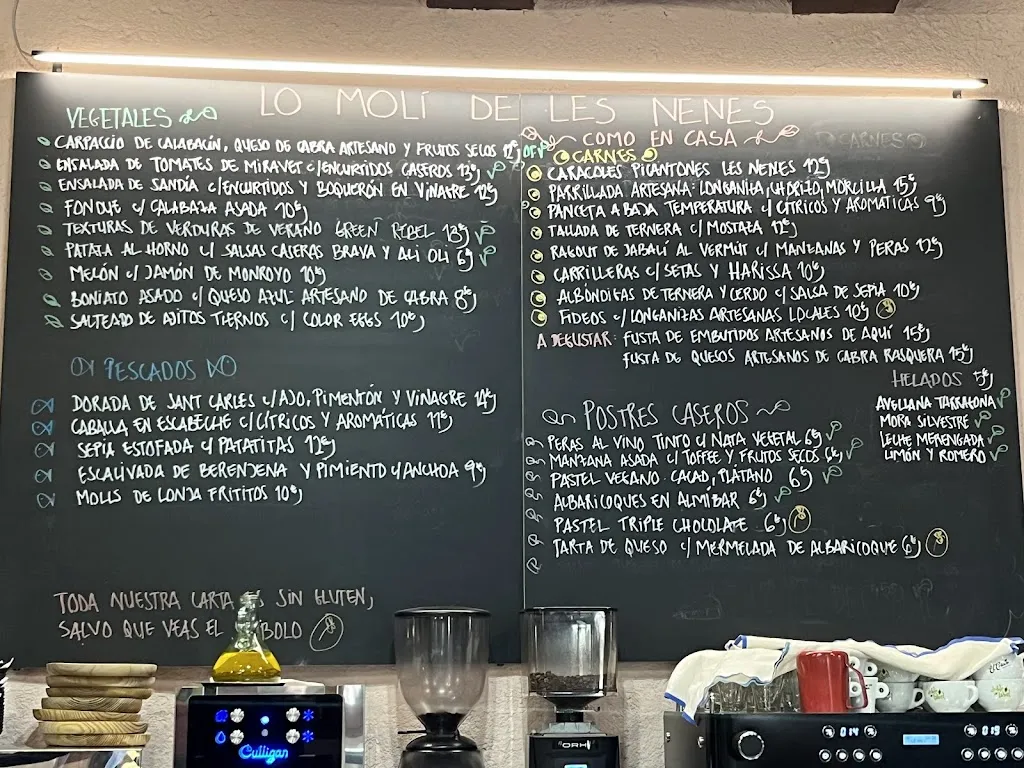 LO MOLÍ DE LES NENES
VEGETALES
CARPACCIO DE CALABACÍN, QUESO DE CABRA ARTESANO Y FRUTOS SECOS 12€
ENSALADA DE TOMATES DE MIRAVET C/ENCURTIDOS CASEROS 13€
ENSALADA DE SANDÍA C/ENCURTIDOS Y BOQUERÓN EN VINAGRE 12€
FONDUE C/ CALABAZA ASADA 10€
TEXTURAS DE VERDURAS DE VERANO GREEN REBEL 13€
PATATA AL HORNO C/ SALSAS CASERAS BRAVA Y ALI OLI 6€
MELÓN C/ JAMÓN DE MONROYO 10€
BONIATO ASADO C/ QUESO AZUL ARTESANO DE CABRA 8€
SALTEADO DE AJITOS TIERNOS C/ COLOR EGGS 10€
PESCADOS
DORADA DE SANT CARLES C/AJO, PIMENTÓN Y VINAGRE 14€
CABALLA EN ESCABECHE C/CÍTRICOS Y AROMÁTICAS 11€
SEPIA ESTOFADA C/ PATATITAS 12€
ESCALIVADA DE BERENJENA Y PIMIENTO C/ANCHOA 9€
MOLLS DE LONJA FRITITOS 10€
TODA NUESTRA CARTA ES SIN GLUTEN,
SALVO QUE VEAS EL BOLO
COMO EN CASA
CARNES
CARNES
CARACOLES PICANTONES LES NENES 12€
PARRILLADA ARTESANA: LONGANIZA, CHORIZO, MORCILLA 15€
PANCETA A BAJA TEMPERATURA C/ CÍTRICOS Y AROMATICAS 9€
TALLADA DE TERNERA C/ MOSTAZA 12€
RAGOUT DE JABALÍ AL VERMÚT C/ MANZANAS Y PERAS 12€
CARRILLERAS C/ SETAS Y HARISSA 10€
ALBÓNDIGAS DE TERNERA Y CERDO C/ SALSA DE SEPIA 10€
FIDEOS C/ LONGANIZAS ARTESANAS LOCALES 10€
A DEGUSTAR: FUSTA DE EMBUTIDOS ARTESANOS DE AQUÍ 15€
FUSTA DE QUESOS ARTESANOS DE CABRA RASQUERA 15€
HELADOS 5€
AVELLANA TARRAGONA
MORA SILVESTRE
LECHE MERENGADA
LIMÓN Y ROMERO
POSTRES CASEROS
PERAS AL VINO TINTO C/ NATA VEGETAL 6€
MANZANA ASADA C/ TOFFEE Y FRUTOS SECOS 6€
PASTEL VEGANO CACAO, PLÁTANO 6€
ALBARICOQUES EN ALMÍBAR 6€
PASTEL TRIPLE CHOCOLATE 6€
TARTA DE QUESO C/ MERMELADA DE ALBARICOQUE 6€
Culligan
014
019